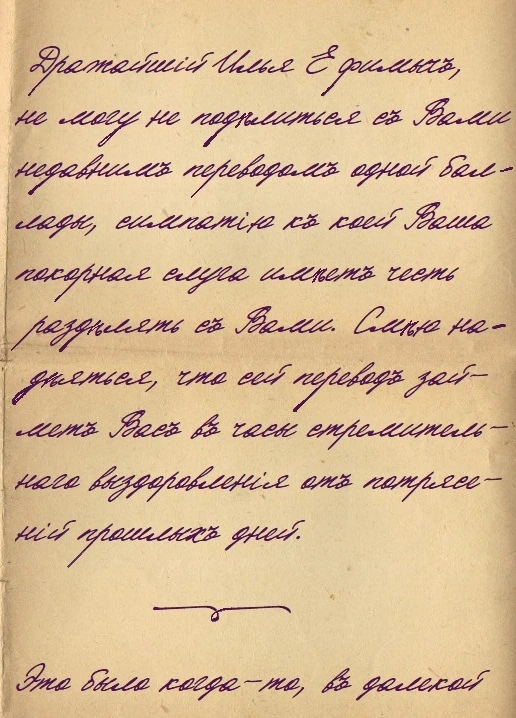 Дражайшій Илья Ефимычъ,
не могу не подѣлиться съ Вами
недавнимъ переводомъ одной бал-
лады, симпатію къ коей Ваша
покорная слуга имѣетъ честь
раздѣлять съ Вами. Смѣю на-
дѣяться, что сей переводъ зай-
метъ Васъ въ часы стремитель-
наго выздоровленія отъ потрясе-
ній прошлыхъ дней.
Это было когда-то, въ далекой